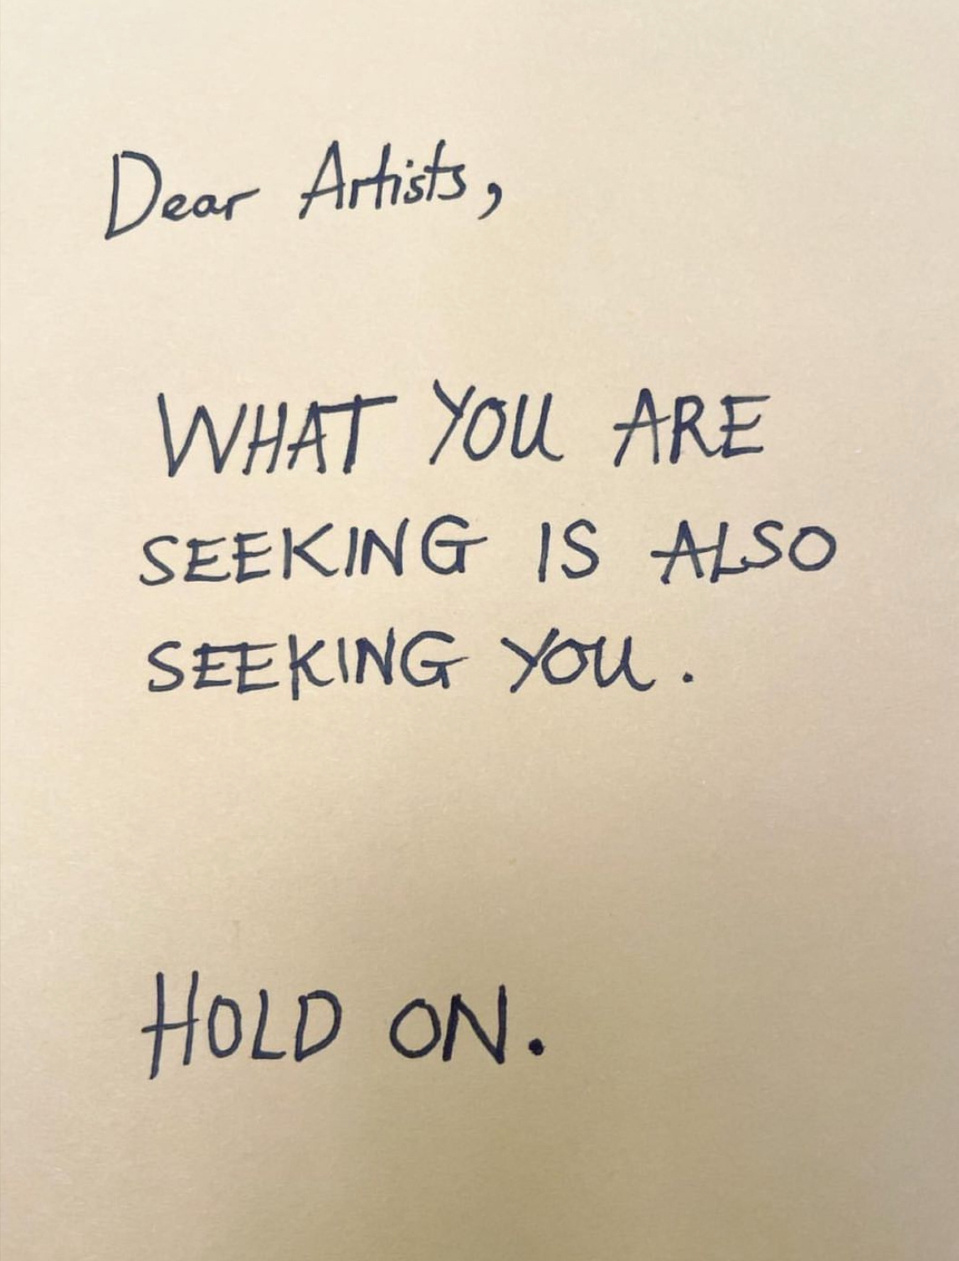 Dear Artists,
WHAT YOU ARE
SEEKING IS ALSO
SEEKING YOU.
HOLD ON.